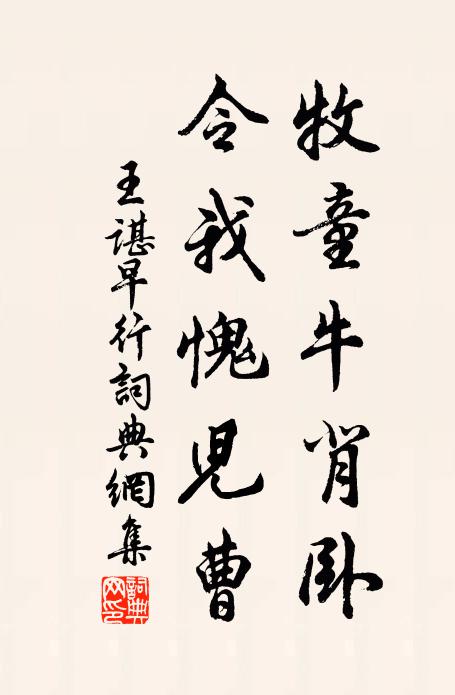 牧童牛背卧
令我愧兒曹
王諶早行詞典網集
詞典
网印